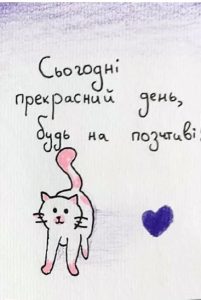 Сьогодні
прекрасний день,
будь на позитиві: